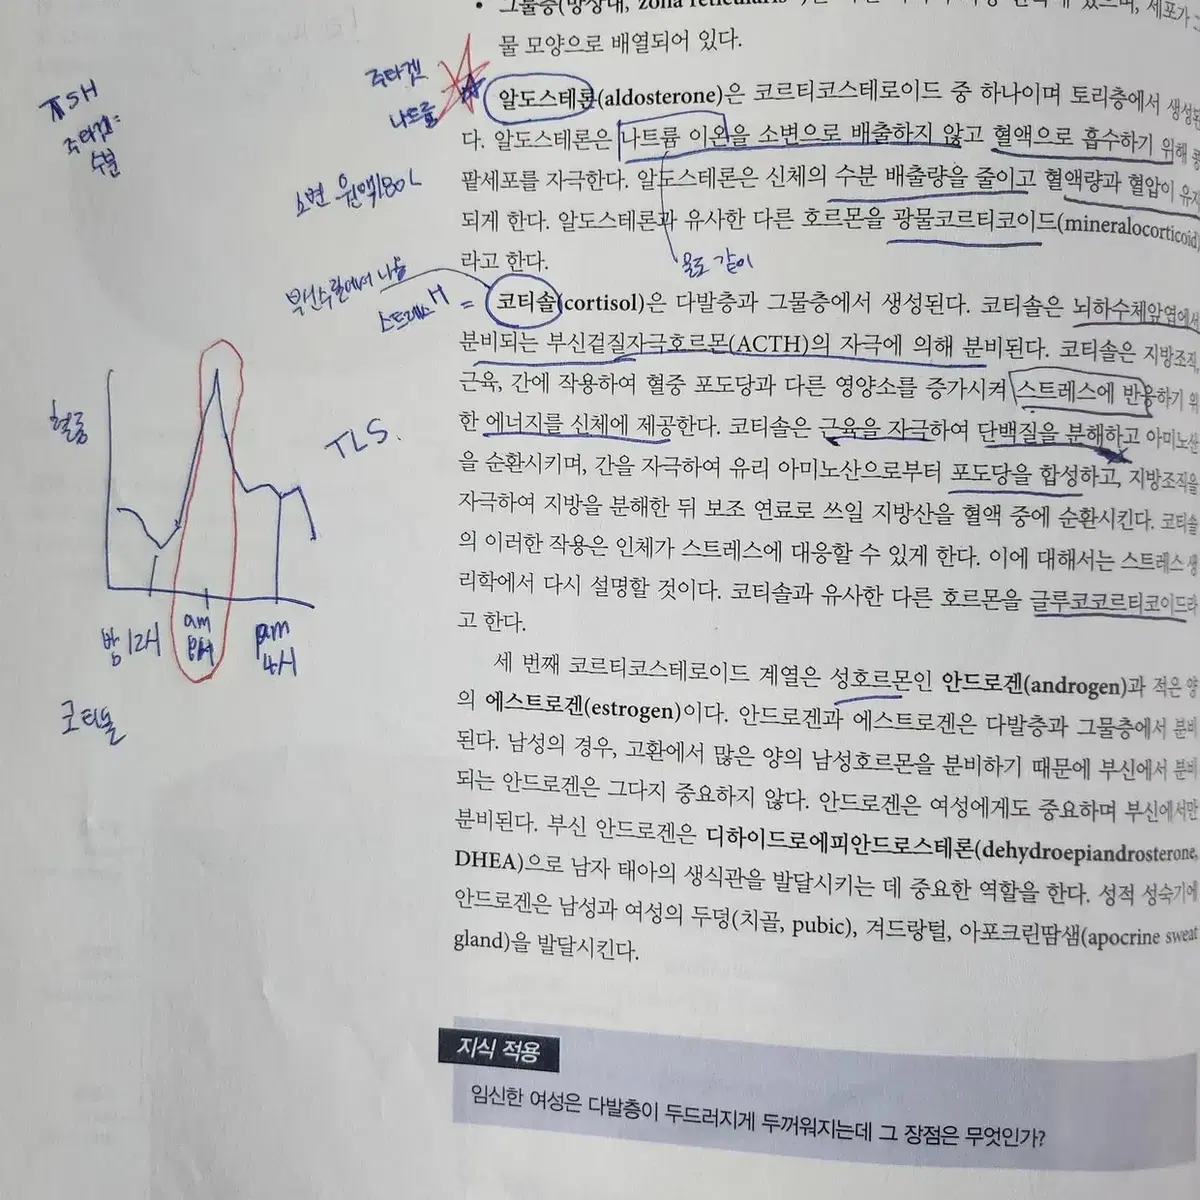 • 그물층(망상대, zona reticularis
물 모양으로 배열되어 있다.
주타겟
나트륨
알도스테론(aldosterone)은 코르티코스테로이드 중 하나이며 토리층에서 생성된
다. 알도스테론은 나트륨 이온을 소변으로 배출하지 않고 혈액으로 흡수하기 위해 콩
팥세포를 자극한다. 알도스테론은 신체의 수분 배출량을 줄이고 혈액량과 혈압이 유지
되게 한다. 알도스테론과 유사한 다른 호르몬을 광물코르티코이드(mineralocorticoid)
라고 한다.
물도 같이
주타겟=
수분
소변 원액180L
부신수질에서 나옴
스트레스H =
코티솔(cortisol)은 다발층과 그물층에서 생성된다. 코티솔은 뇌하수체앞엽에서
분비되는 부신겉질자극호르몬(ACTH)의 자극에 의해 분비된다. 코티솔은 지방조직,
근육, 간에 작용하여 혈중 포도당과 다른 영양소를 증가시켜 스트레스에 반응하기 위
한 에너지를 신체에 제공한다. 코티솔은 근육을 자극하여 단백질을 분해하고 아미노산
을 순환시키며, 간을 자극하여 유리 아미노산으로부터 포도당을 합성하고, 지방조직을
자극하여 지방을 분해한 뒤 보조 연료로 쓰일 지방산을 혈액 중에 순환시킨다. 코티솔
의 이러한 작용은 인체가 스트레스에 대응할 수 있게 한다. 이에 대해서는 스트레스 생
리학에서 다시 설명할 것이다. 코티솔과 유사한 다른 호르몬을 글루코코르티코이드라
고 한다.
TLS.
혈중
밤 12시
am
8시
pm
4시
코티솔
세 번째 코르티코스테로이드 계열은 성호르몬인 안드로겐(androgen)과 적은 양
의 에스트로겐(estrogen)이다. 안드로겐과 에스트로겐은 다발층과 그물층에서 분비
된다. 남성의 경우, 고환에서 많은 양의 남성호르몬을 분비하기 때문에 부신에서 분비
되는 안드로겐은 그다지 중요하지 않다. 안드로겐은 여성에게도 중요하며 부신에서만
분비된다. 부신 안드로겐은 디하이드로에피안드로스테론(dehydroepiandrosterone,
DHEA)으로 남자 태아의 생식관을 발달시키는 데 중요한 역할을 한다. 성적 성숙기에
안드로겐은 남성과 여성의 두덩(치골, pubic), 겨드랑털, 아포크린땀샘(apocrine sweat
gland)을 발달시킨다.
지식 적용
임신한 여성은 다발층이 두드러지게 두꺼워지는데 그 장점은 무엇인가?